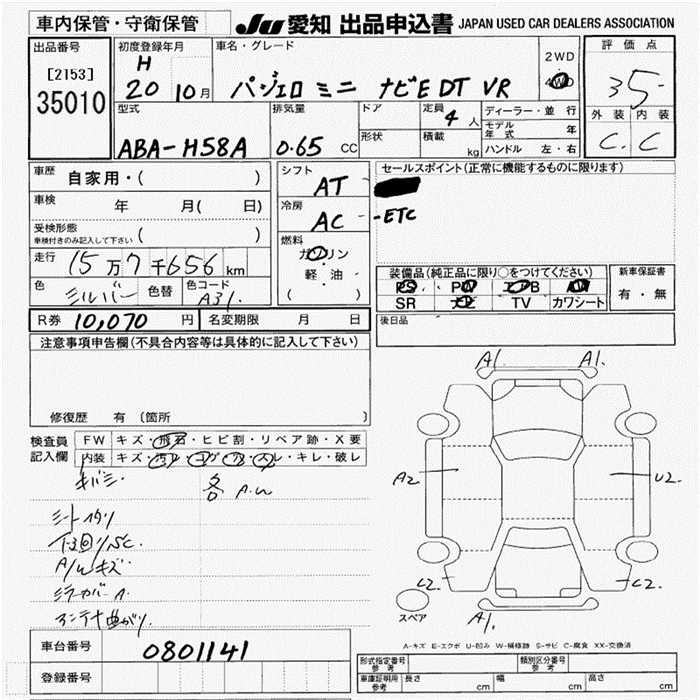 車内保管・守衛保管
JU 愛知 出品申込書 JAPAN USED CAR DEALERS ASSOCIATION
出品番号
[2153]
35010
初度登録年月
H
20 10月
車名・グレード
パジェロ ミニ ナビE DT VR
2WD
4WD
評価点
35-
外装 内装
C. C
型式
ABA-H58A
排気量
0.65 CC
ドア
形状
定員
4人
積載
kg
ディーラー・並行
モデル年式 年
ハンドル 左・右
車歴
自家用・( )
車検
年 月( 日)
受検形態
車検付きのみ記入して下さい ( )
走行
15万7千656km
色 シルバー 色替 色コード A31.
シフト
AT
冷房
AC
燃料
ガソリン
軽・油
( )
セールスポイント(正常に機能するものに限ります)
-ETC
装備品(純正品に限り○をつけてください)
PS PW エアB AW
SR ナビ TV カワシート
新車保証書
有・無
後日品
R券 10,070円 名変期限 月 日
注意事項申告欄(不具合内容等は具体的に記入して下さい)
修復歴 有 〔箇所 〕
検査員
記入欄
FW キズ・飛石・ヒビ割・リペア跡・X要
内装 キズ・汚レ・コゲ・穴・スレ・キレ・破レ
キバミ. 各 A.W
A/Wキズ
ミラーカバーA
アンテナ曲がり.
A1. A1.
A2 U2.
C2. C2.
A1.
スペア
A-キズ E-エクボ U-凹み W-補修跡 S-サビ C-腐食 XX-交換済
車台番号 0801141
登録番号
形式指定番号 参考 類別区分番号 参考
車庫証明用 参考 長さ cm 幅 cm 高さ cm